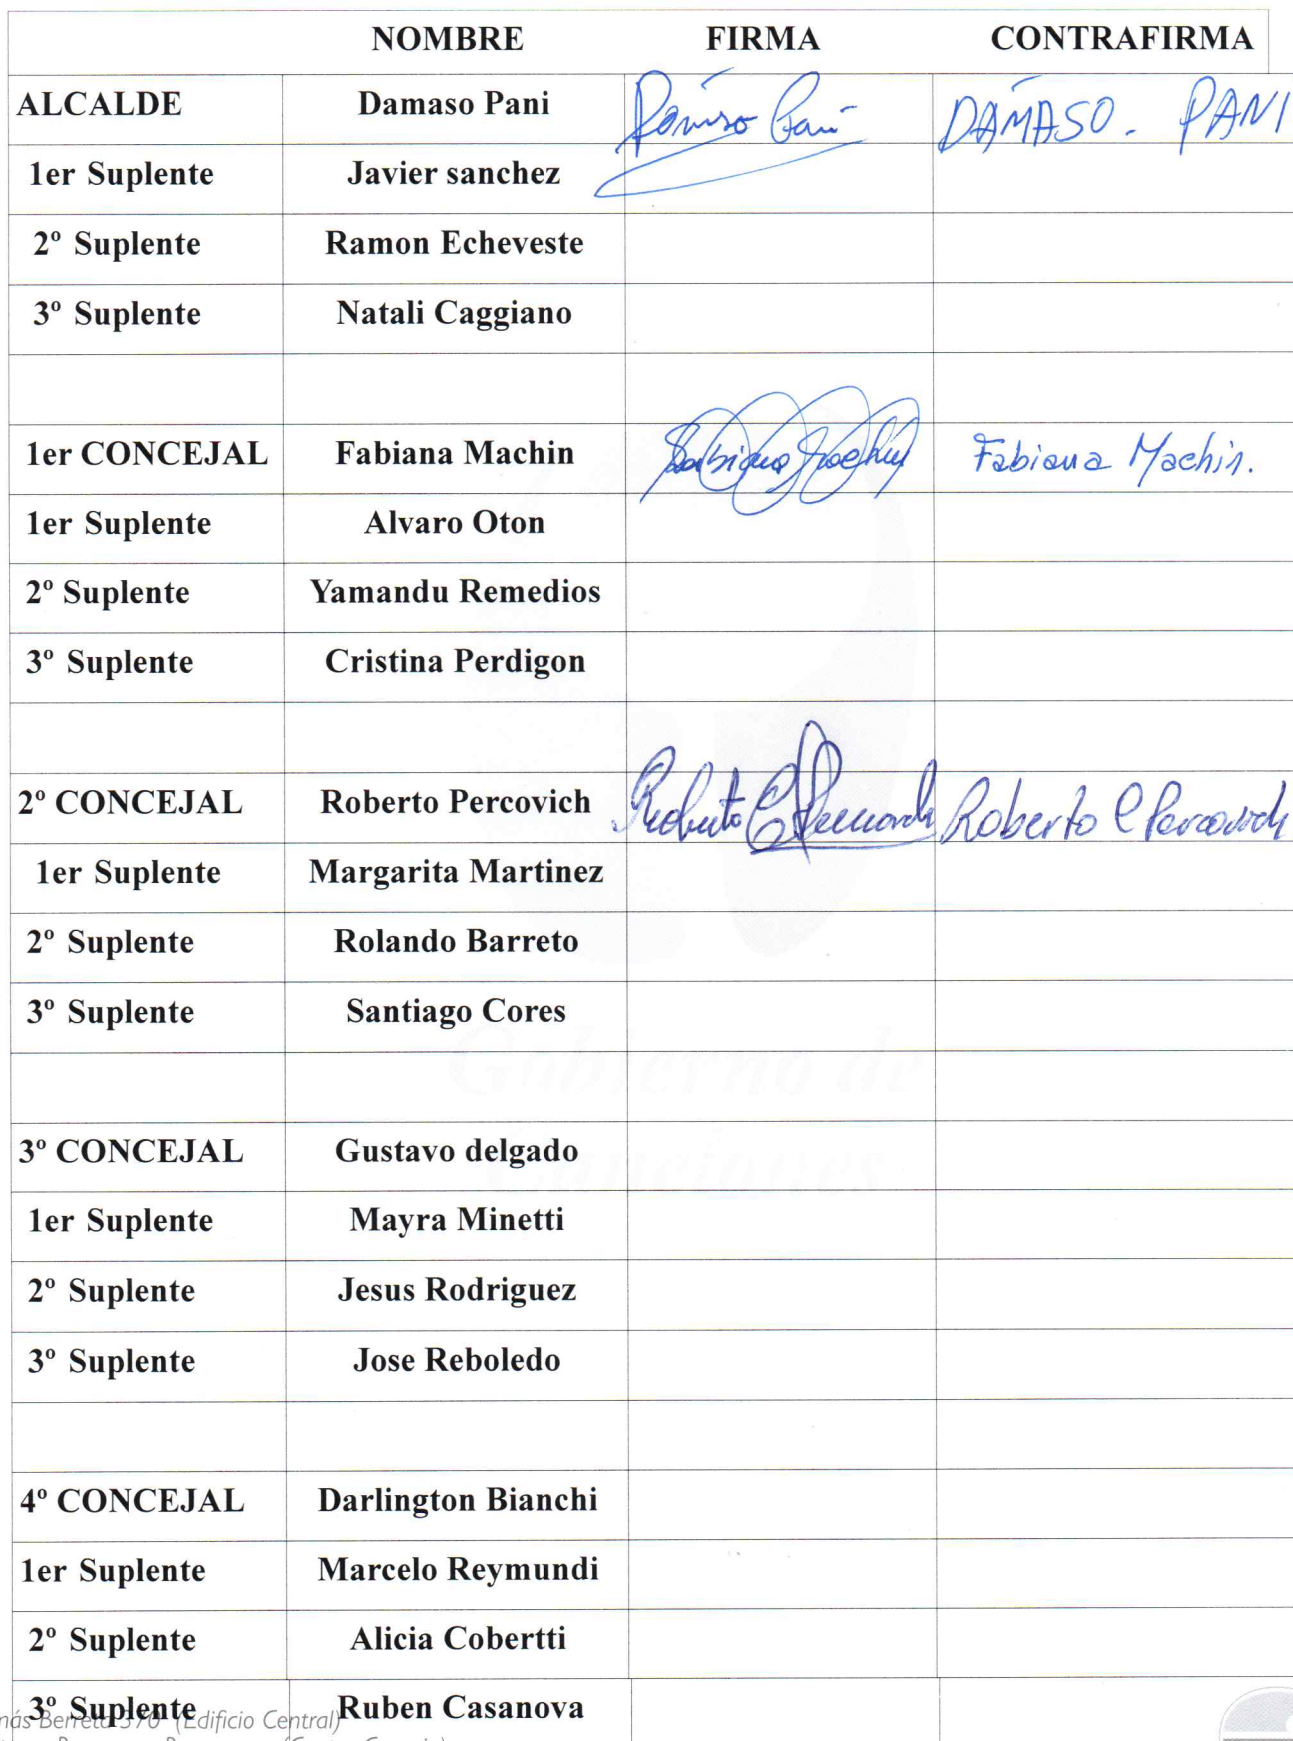 NOMBRE FIRMA CONTRAFIRMA
ALCALDE Damaso Pani Damaso Pani DAMASO. PANI
1er Suplente Javier sanchez
2º Suplente Ramon Echeveste
3º Suplente Natali Caggiano
1er CONCEJAL Fabiana Machin Fabiana Machin Fabiana Machin.
1er Suplente Alvaro Oton
2º Suplente Yamandu Remedios
3º Suplente Cristina Perdigon
2º CONCEJAL Roberto Percovich Roberto C Percovich Roberto C Percovich
1er Suplente Margarita Martinez
2º Suplente Rolando Barreto
3º Suplente Santiago Cores
Gobierno de
Canelones
3º CONCEJAL Gustavo delgado
1er Suplente Mayra Minetti
2º Suplente Jesus Rodriguez
3º Suplente Jose Reboledo
4º CONCEJAL Darlington Bianchi
1er Suplente Marcelo Reymundi
2º Suplente Alicia Cobertti
3º Suplente Ruben Casanova
más Berreta 370 (Edificio Central)